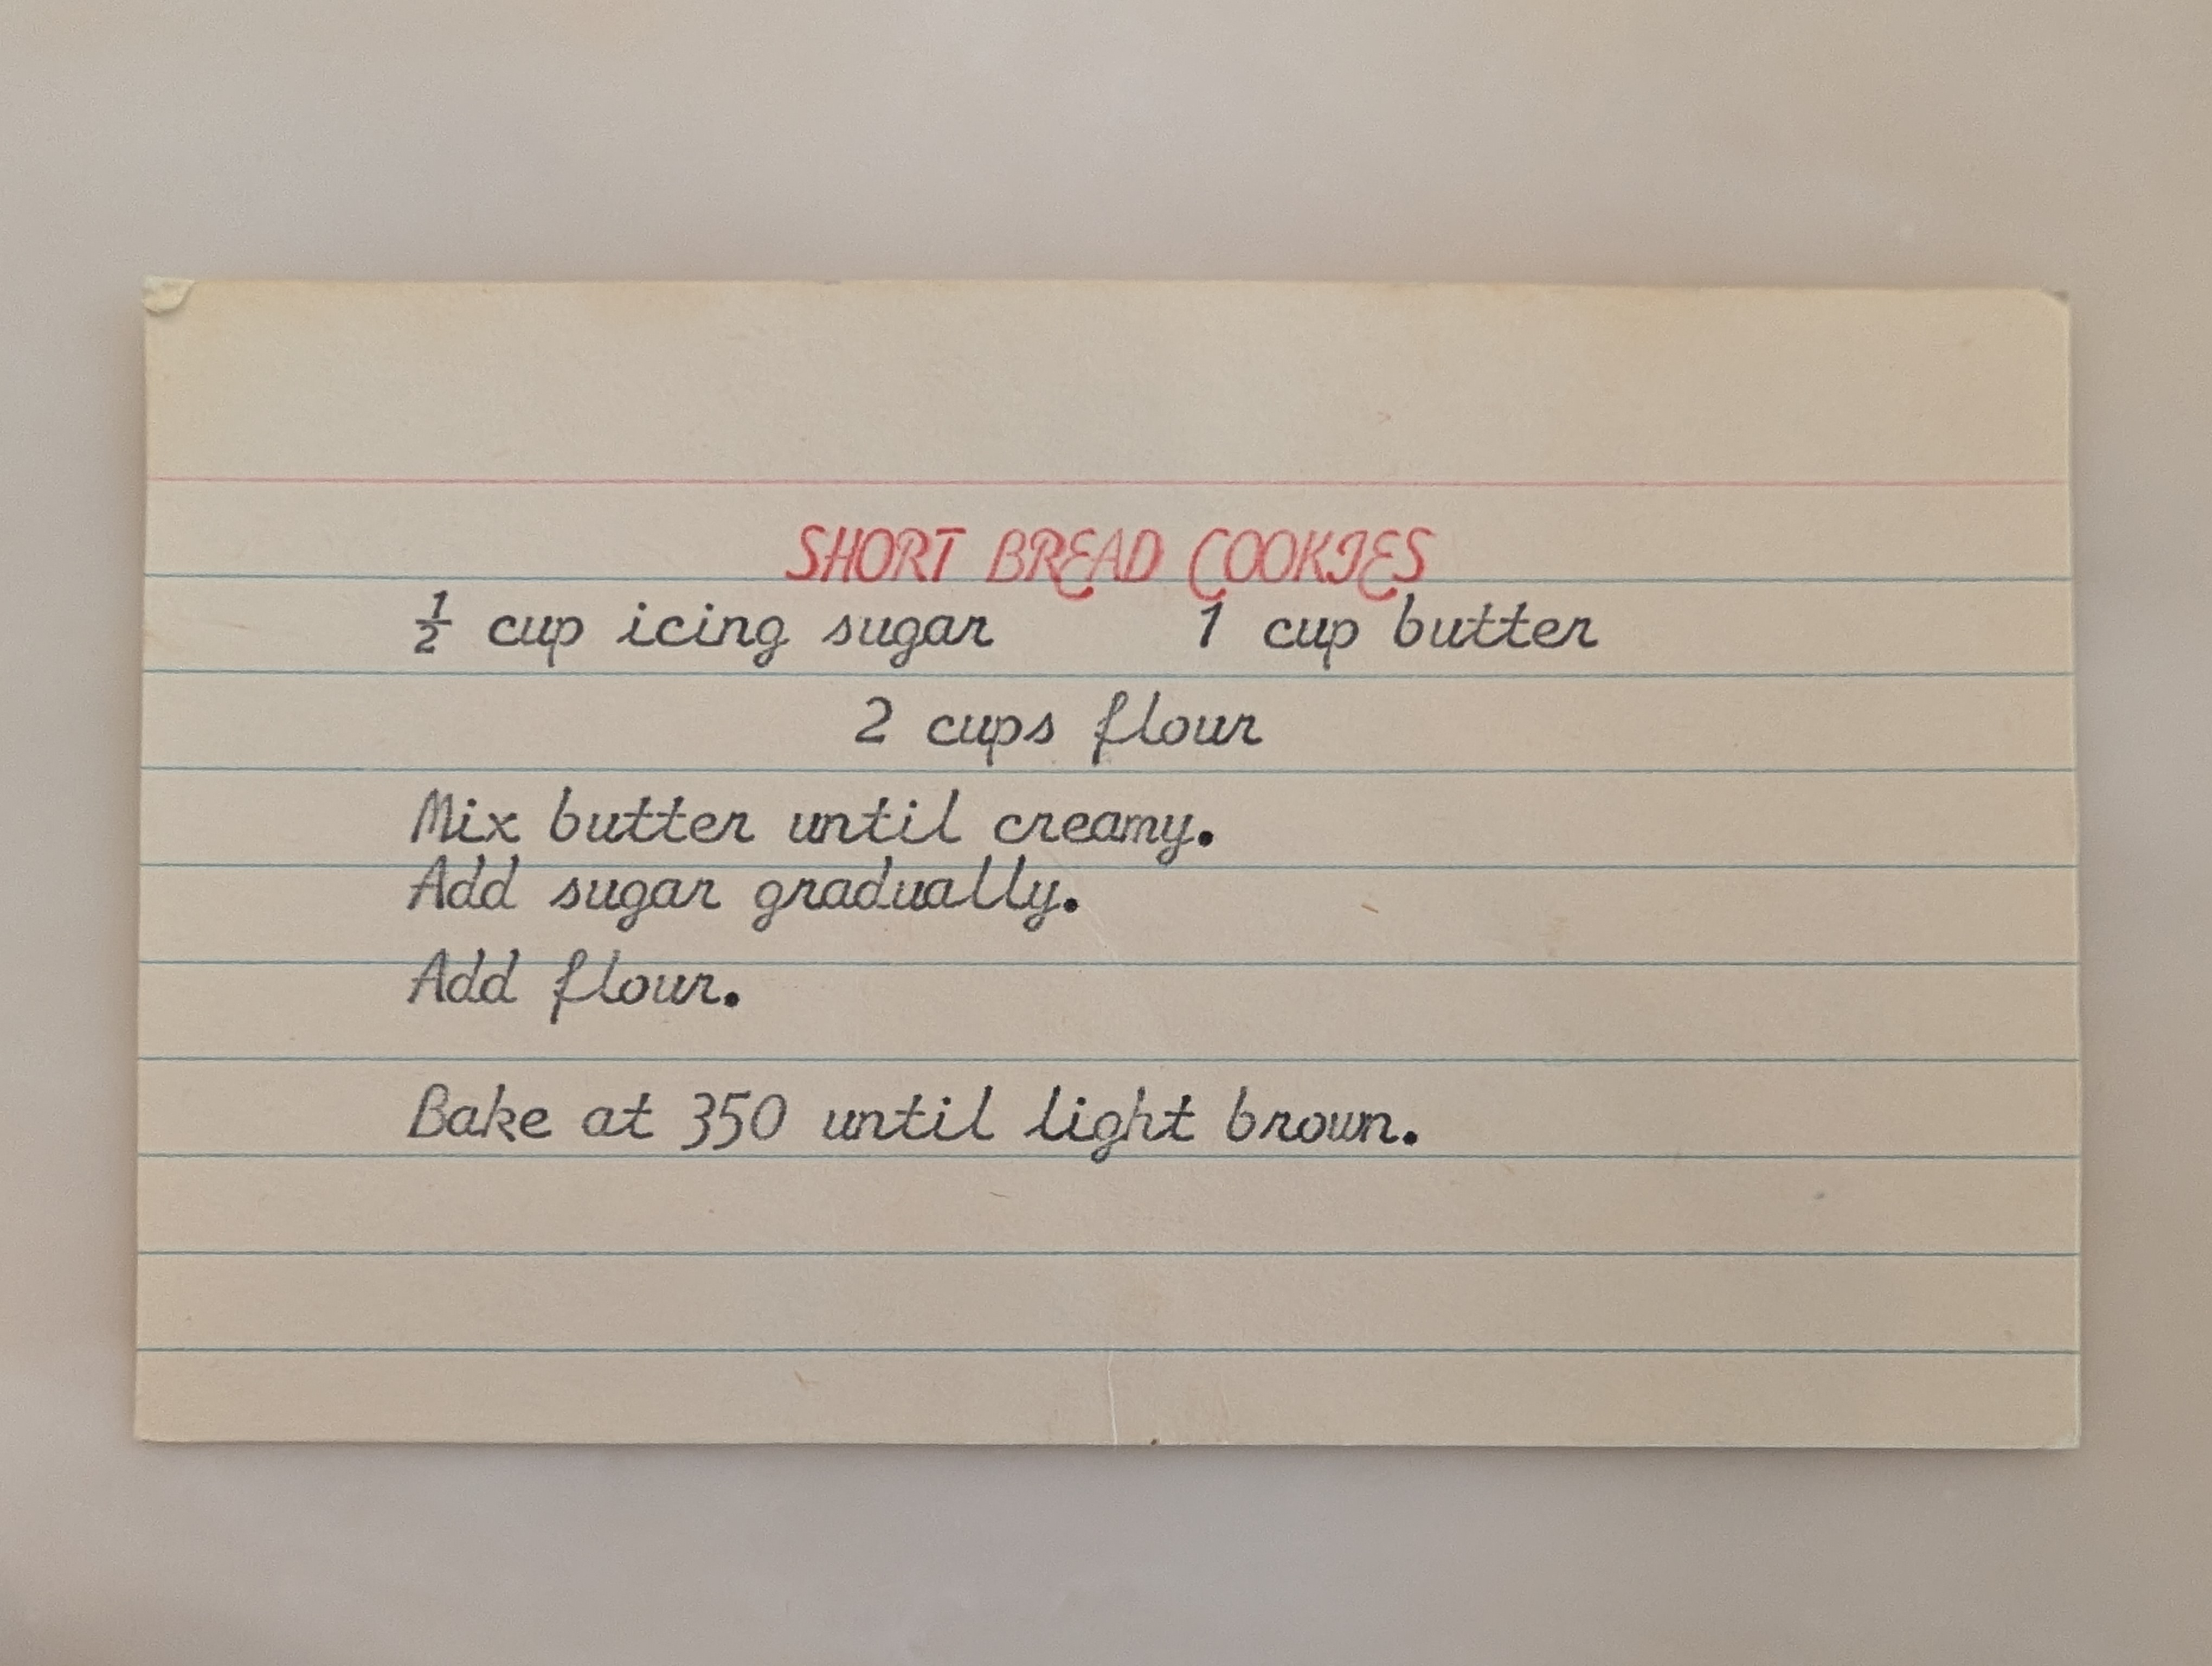 SHORT BREAD COOKIES
½ cup icing sugar 1 cup butter
2 cups flour
Mix butter until creamy.
Add sugar gradually.
Add flour.
Bake at 350 until light brown.